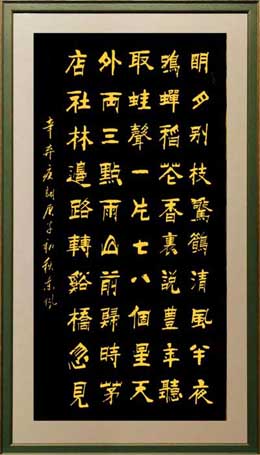 明月别枝驚鵲清風半夜
鳴蟬稻花香裏説豊年聽
取蛙聲一片七八個星天
外両三點雨山前歸時茅
店社林邊路轉谿橋忽見
辛弃疾詞庚子初秋